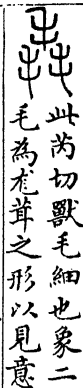 毳
此芮切獸毛細也象二
毛為尨茸之形以見意